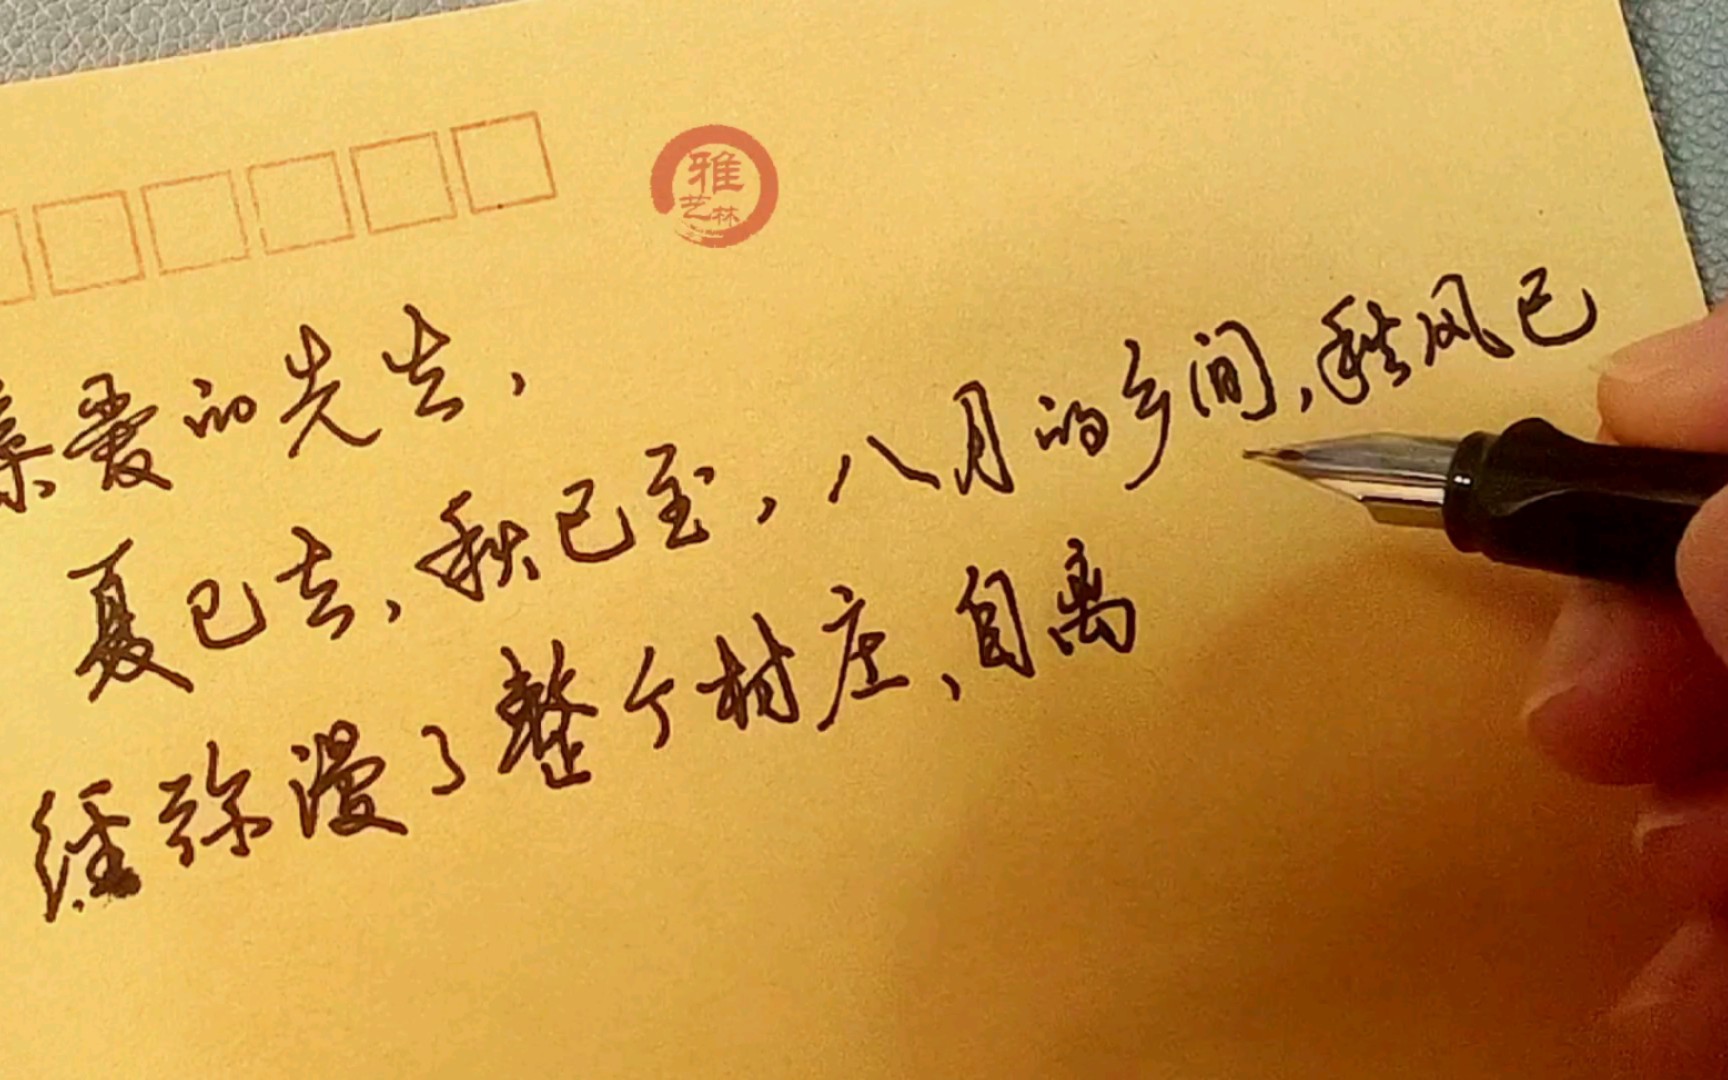 雅
艺林
亲爱的先生，
夏已去，秋已至，八月的乡间，秋风已
经弥漫了整个村庄，自离